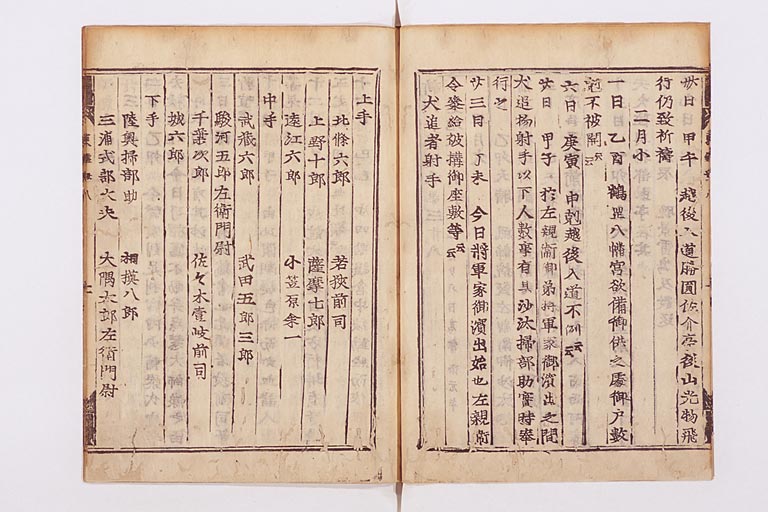 廿日日 甲午 越後入道勝圓佐介亭後山光物飛
行仍致祈禱
二月小
一日日 乙酉 鶴罡八幡宮欲備御供之處御戸數
剋不被開云云
六日 庚寅 申剋越後入道不例云云
廿日 甲子 於左親衛御弟將軍家御濱出之間
犬追物射手以下人數事有其沙汰掃部助實時奉
行之
廿三日 丁未 今日將軍家御濱出始也左親衛
令築給被搆御座敷等云云
犬追者射手
上手
北條六郎 若狹前司
上野十郎 薩摩七郎
遠江六郎 小笠原余一
中手
武藏六郎 武田五郎三郎
駿河五郎左衛門尉
千葉次郎 佐々木壹岐前司
城六郎
下手
陸奥掃部助 相摸八郎
三浦式部大夫 大隅太郎左衛門尉